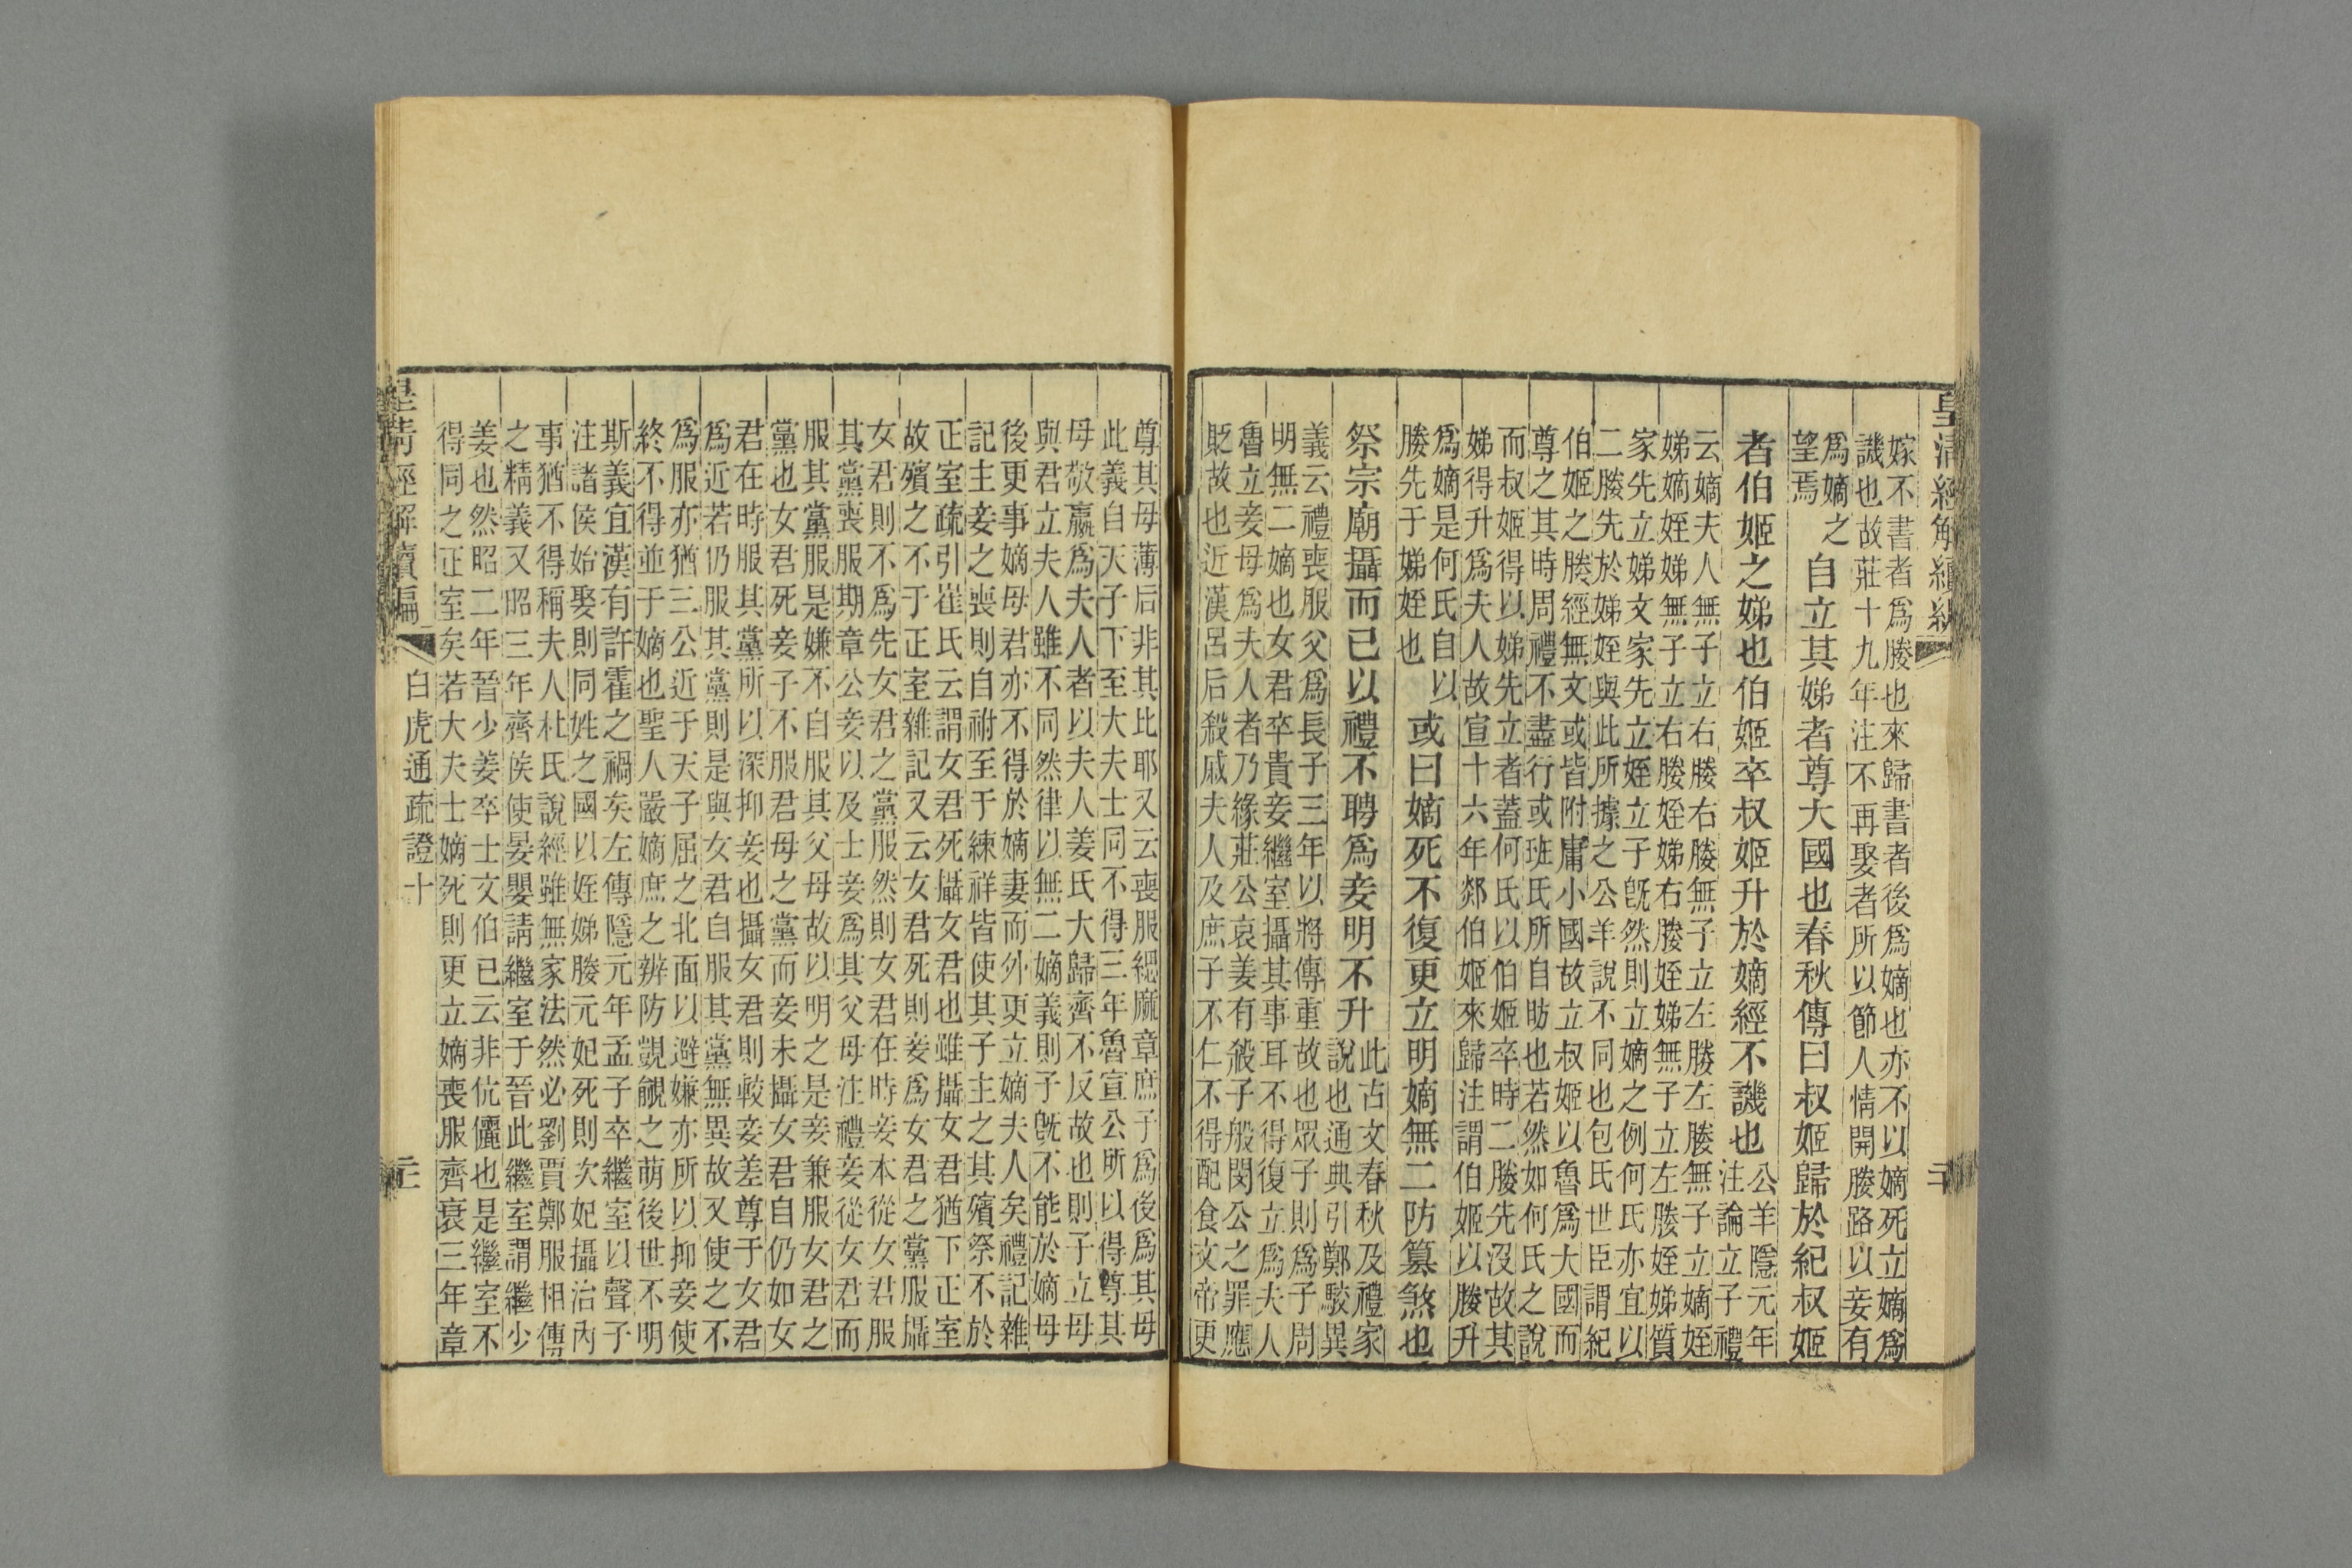 皇清經解續編
嫁不書者爲媵也來歸書者後爲嫡也亦不以嫡死立嫡爲
譏也故莊十九年注不再娶者所以節人情開媵路以妾有
爲嫡之
望焉
自立其娣者尊大國也春秋傳曰叔姬歸於紀叔姬
者伯姬之娣也伯姬卒叔姬升於嫡經不譏也
公羊隱元年
注論立子禮
云嫡夫人無子立右媵右媵無子立左媵左媵無子立嫡姪
娣嫡姪娣無子立右媵姪娣右媵姪娣無子立左媵姪娣質
家先立娣文家先立姪立子旣然則立嫡之例何氏亦宜以
二媵先於娣姪與此所據之公羊說不同也包氏世臣謂紀
伯姬之媵經無文或皆附庸小國故立叔姬以魯爲大國而
尊之其時周禮不盡行或班氏所自昉也若然如何氏之說
而叔姬得以娣先立者蓋何氏以伯姬卒時二媵先沒故其
娣得升爲夫人故宣十六年郯伯姬來歸注謂伯姬以媵升
爲嫡是何氏自以
媵先于娣姪也
或曰嫡死不復更立明嫡無二防篡煞也
祭宗廟攝而已以禮不聘爲妾明不升
此古文春秋及禮家
說也通典引鄭駮異
義云禮喪服父爲長子三年以將傳重故也眾子則爲子周
明無二嫡也女君卒貴妾繼室攝其事耳不得復立爲夫人
魯立妾母爲夫人者乃緣莊公哀姜有殺子般閔公之罪應
貶故也近漢呂后殺戚夫人及庶子不仁不得配食文帝更
尊其母薄后非其比耶又云喪服緦麻章庶子爲後爲其母
此義自天子下至大夫士同不得三年魯宣公所以得尊其
母敬嬴爲夫人者以夫人姜氏大歸齊不反故也則子立母
與君立夫人雖不同然律以無二嫡義則子旣不能於嫡母
後更事嫡母君亦不得於嫡妻而外更立嫡夫人矣禮記雜
記主妾之喪則自祔至于練祥皆使其子主之其殯祭不於
正室疏引崔氏云謂女君死攝女君也雖攝女君猶下正室
故殯之不于正室雜記又云女君死則妾爲女君之黨服攝
女君則不爲先女君之黨服然則女君在時妾本從女君服
其黨喪服期章公妾以及士妾爲其父母注禮妾從女君而
服其黨服是嫌不自服其父母故以明之是妾兼服女君之
黨也女君死妾子不服君母之黨而妾未攝女君自仍如女
君在時服其黨所以深抑妾也攝女君則較妾差尊于女君
爲近若仍服其黨則是與女君自服其黨無異故又使之不
爲服亦猶三公近于天子屈之北面以避嫌亦所以抑妾使
終不得並于嫡也聖人嚴嫡庶之辨防覬覦之萌後世不明
斯義宜漢有許霍之禍矣左傳隱元年孟子卒繼室以聲子
注諸侯始娶則同姓之國以姪娣媵元妃死則次妃攝治內
事猶不得稱夫人杜氏說經雖無家法然必劉賈鄭服相傳
之精義又昭三年齊侯使晏嬰請繼室于晉此繼室謂繼少
姜也然昭二年晉少姜卒士文伯已云非伉儷也是繼室不
得同之正室矣若大夫士嫡死則更立嫡喪服齊衰三年章
皇清經解續編
白虎通疏證十